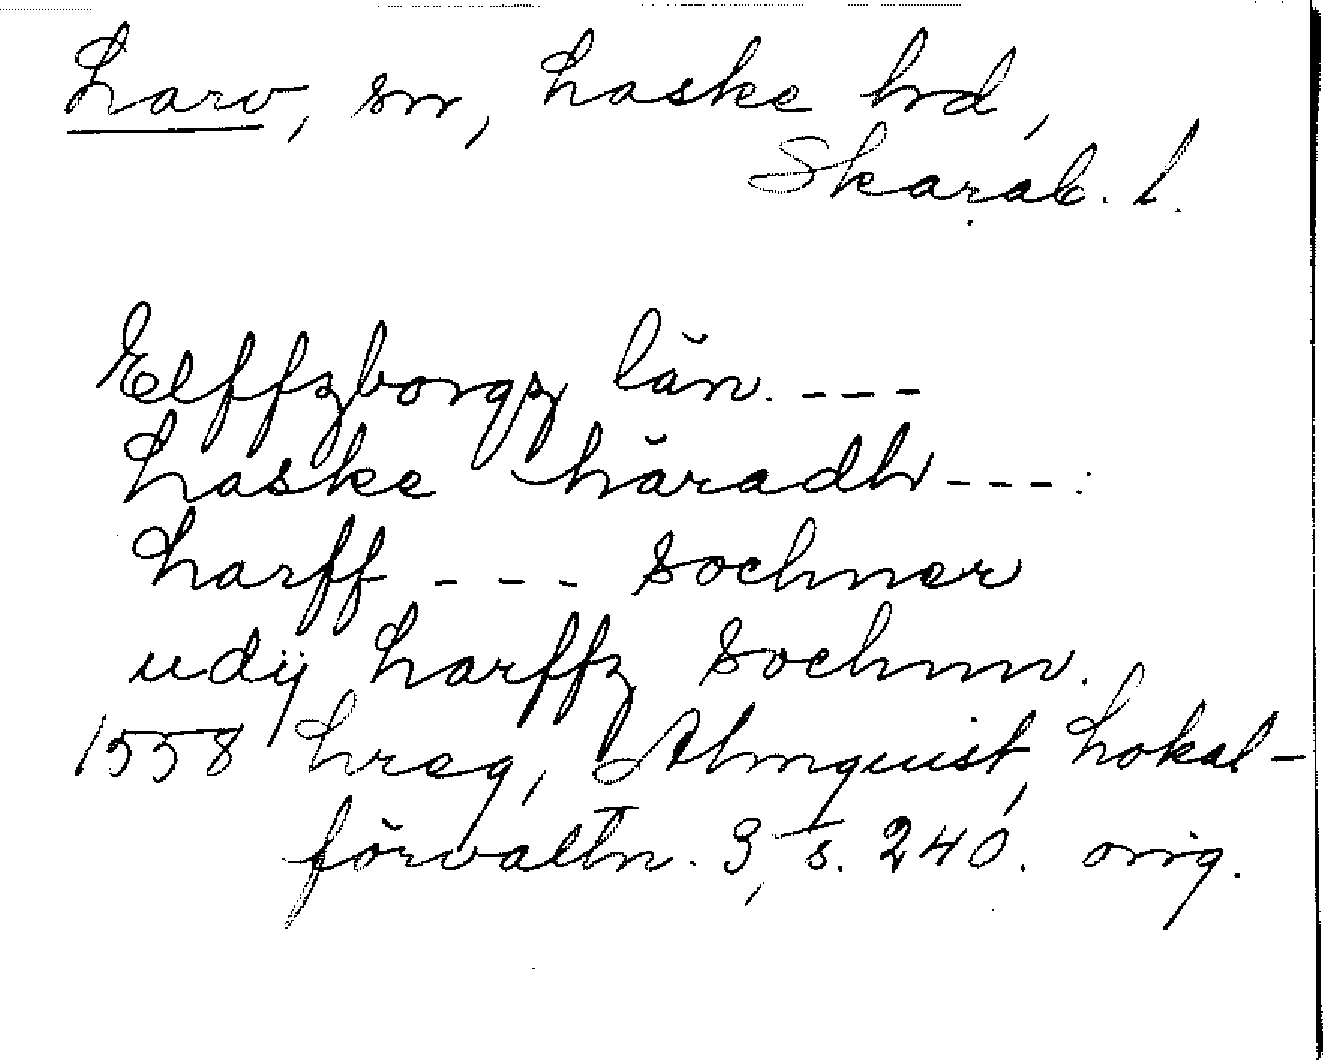 Larv, sn, Laske hd,
Skarab. l.
Elffzborgz län. ---
Laske häradh ---.
Larff --- Sochner
udij Larffz Sochnn.
1558 Lreg, Almquist, Lokal-
förvaltn. 3, s. 240. orig.